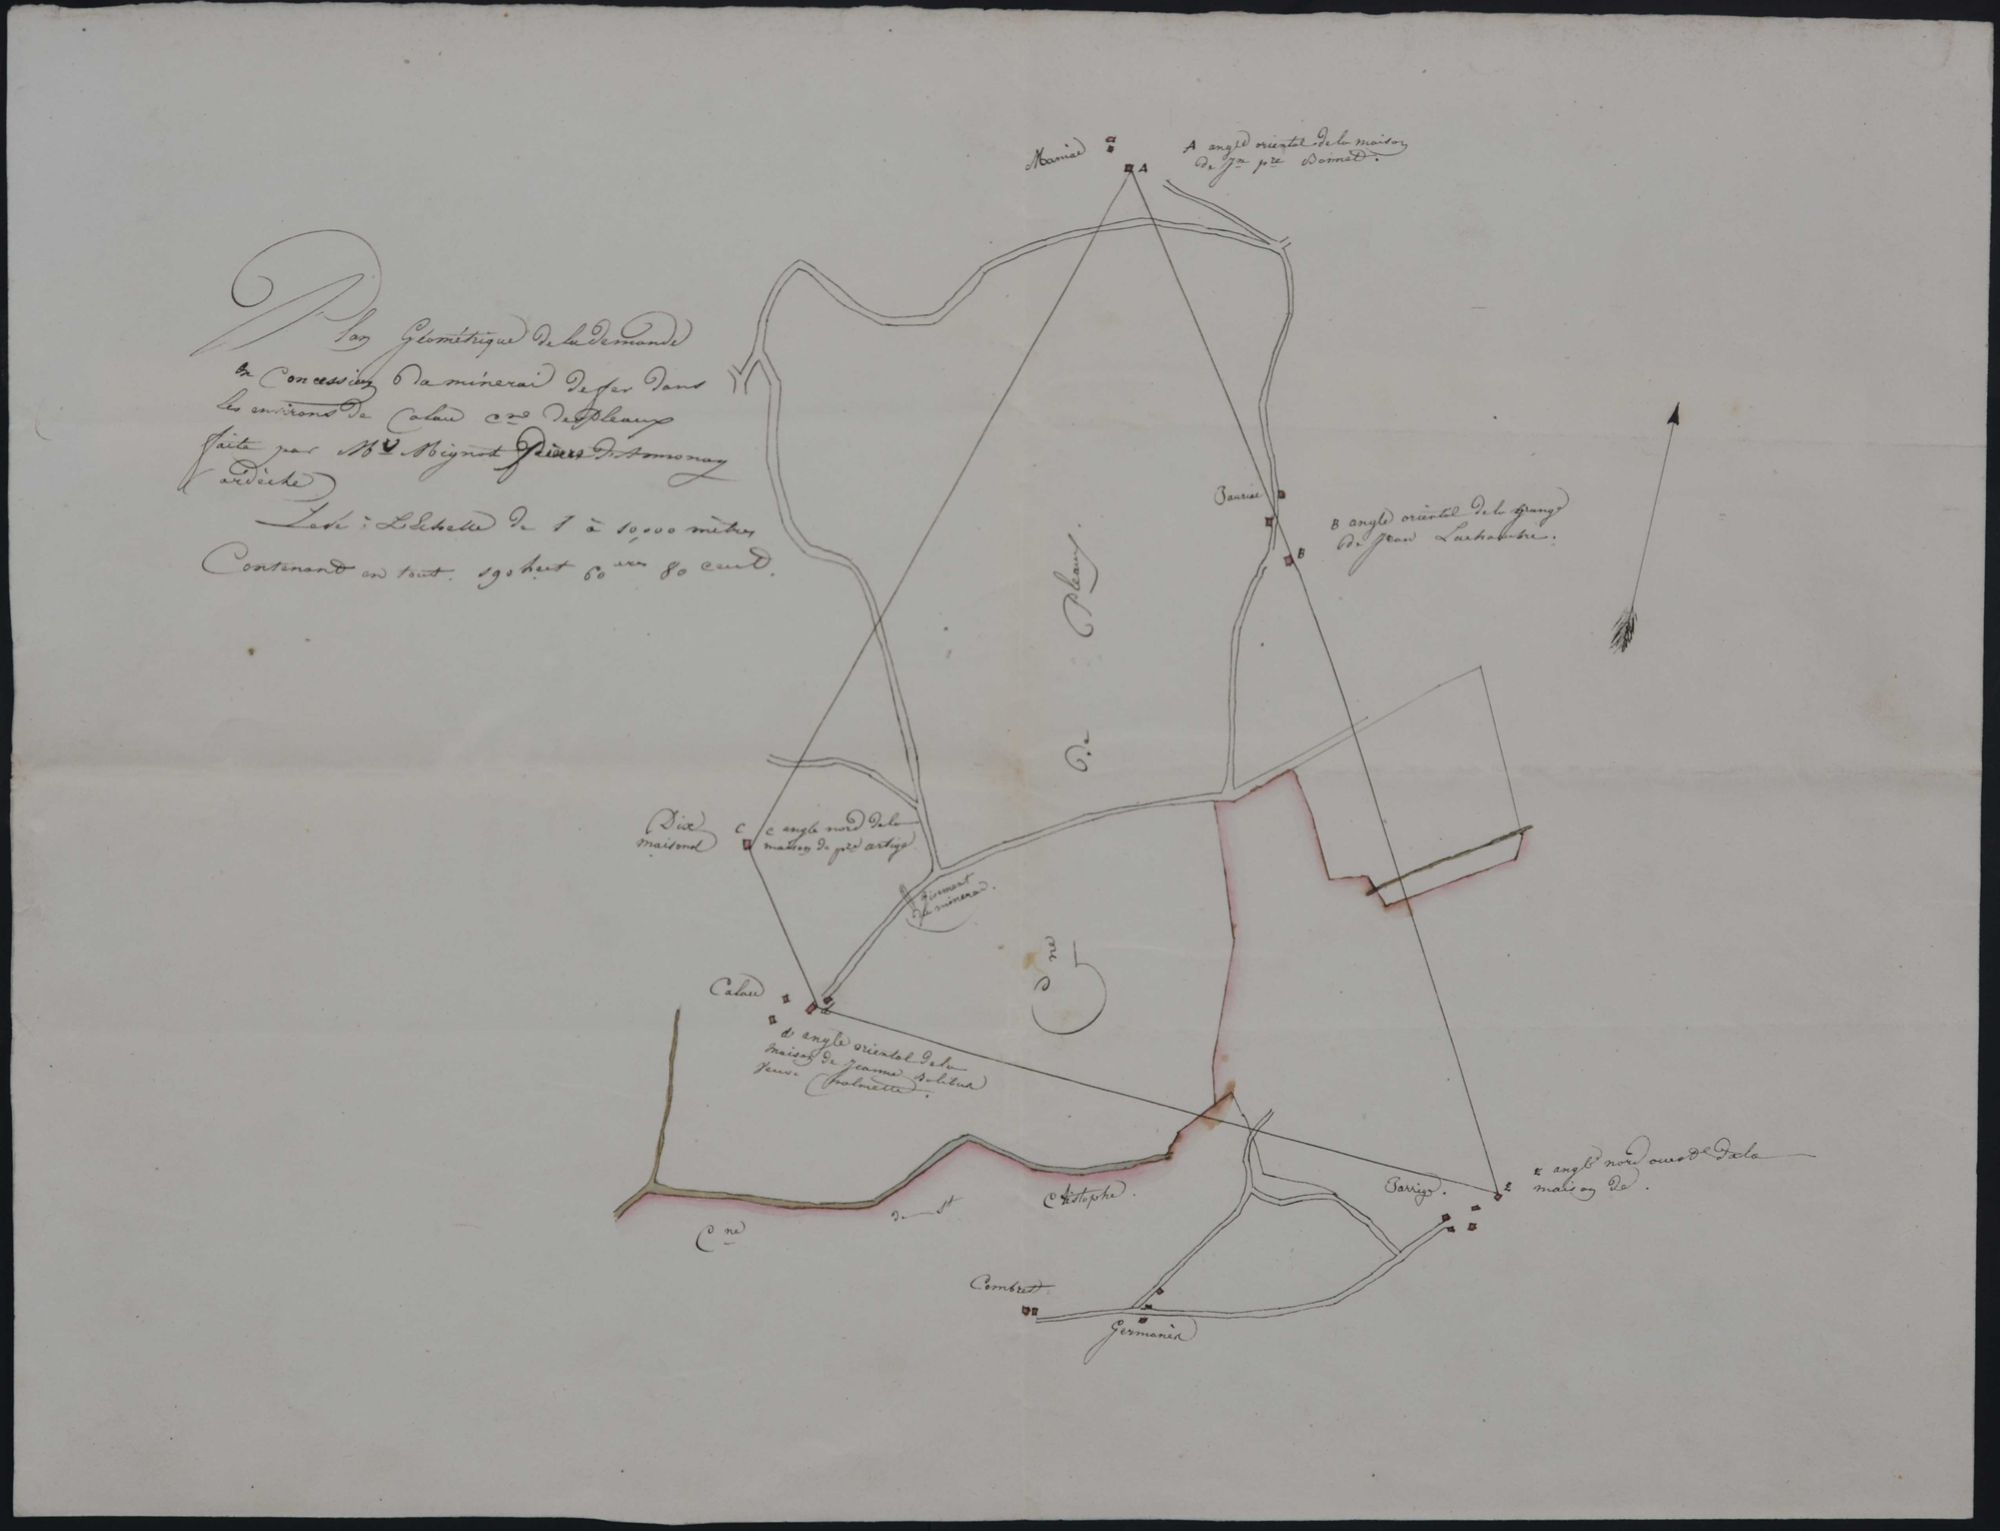 Plan Géométrique de la demande
en Concession de minerai de fer dans
les environs de Calau cne de Pleaux
faite par Mrs Mignot frères d'Annonay
ardèche
Levé à L'Echelle de 1 à 10,000 mètres
Contenant en tout. 190 hect 60 ares 80 cent.
Maniac
A
A angle oriental de la maison
de Jn pre Bonnet.
Pauriac
B
B angle oriental de la grange
de Jean Lachambre.
Cne de Pleaux
Dix
maisons
C
C angle nord de la
maison de pre artige
Gisement
de minerai.
Calau
d
d angle oriental de la
maison de Jeanne
veuve Chalmette.
Cne de St Cristophe.
Parrige.
E
E angle nord ouest de la
maison de.
Combret.
Germanès